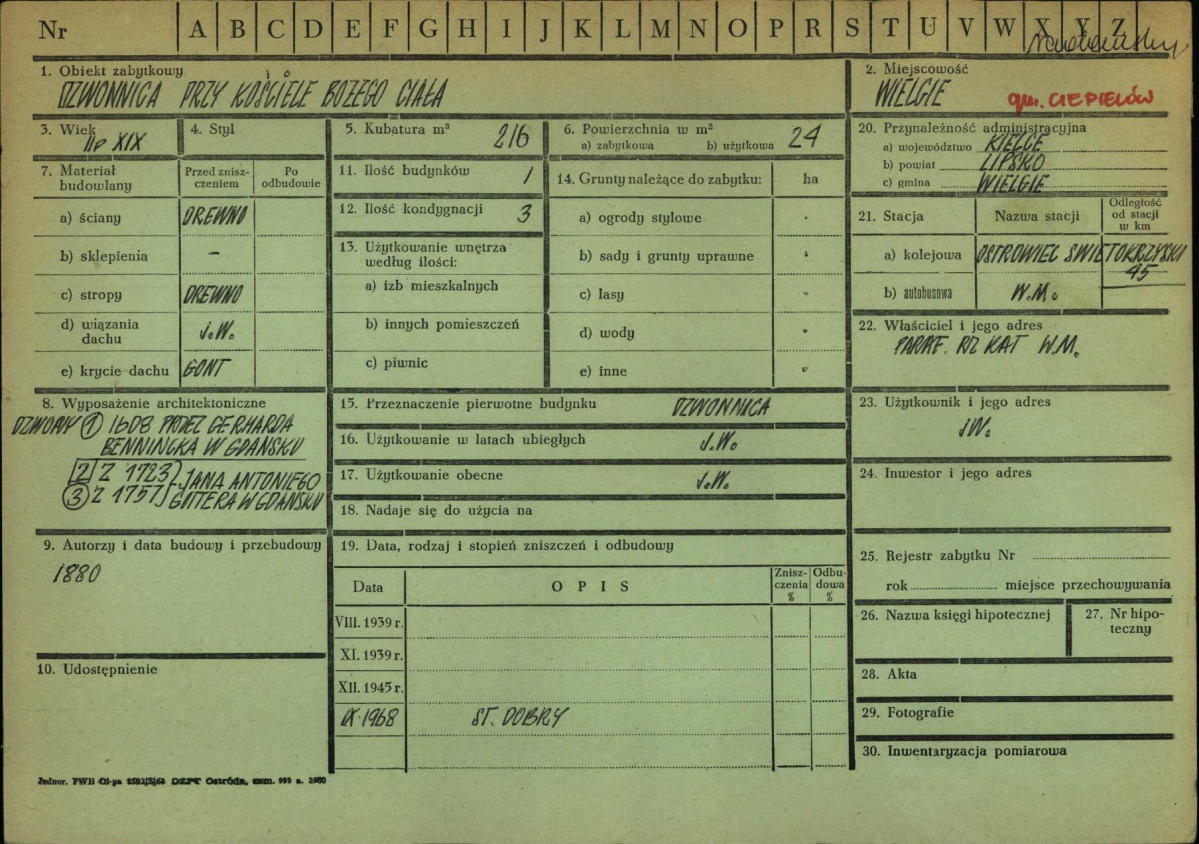 Nr A B C D E F G H I J K L M N O P R S T U V W X Y Z
1. Obiekt zabytkowy
DZWONNICA PRZY KOŚCIELE BOŻEGO CIAŁA
2. Miejscowość
WIELGIE gm. CIEPIELÓW
3. Wiek
IIp XIX
4. Styl
5. Kubatura m³
216
6. Powierzchnia w m²
a) zabytkowa b) użytkowa 24
7. Materiał budowlany
Przed zniszczeniem
Po odbudowie
a) ściany DREWNO
b) sklepienia –
c) stropy DREWNO
d) wiązania dachu J.W.
e) krycie dachu GONT
8. Wyposażenie architektoniczne
DZWONY 1 1608 PRZEZ GERHARDA
BENNINCKA W GDAŃSKU
2 Z 1723 } JANA ANTONIEGO
3 Z 1757 } GOTTERA W GDAŃSKU
9. Autorzy i data budowy i przebudowy
1880
10. Udostępnienie
11. Ilość budynków 1
12. Ilość kondygnacji 3
13. Użytkowanie wnętrza według ilości:
a) izb mieszkalnych
b) innych pomieszczeń
c) piwnic
14. Grunty należące do zabytku: ha
a) ogrody stylowe
b) sady i grunty uprawne
c) lasy
d) wody
e) inne
15. Przeznaczenie pierwotne budynku DZWONNICA
16. Użytkowanie w latach ubiegłych J.W.
17. Użytkowanie obecne J.W.
18. Nadaje się do użycia na
19. Data, rodzaj i stopień zniszczeń i odbudowy
Data OPIS Zniszczenia % Odbudowa %
VIII. 1939 r.
XI. 1939 r.
XII. 1945 r.
IX.1968 ST. DOBRY
20. Przynależność administracyjna
a) województwo KIELCE
b) powiat LIPSKO
c) gmina WIELGIE
21. Stacja Nazwa stacji Odległość od stacji w km
a) kolejowa OSTROWIEC ŚWIETOKRZYSKI 45
b) autobusowa W.M.
22. Właściciel i jego adres
PARAF. RZ KAT W.M.
23. Użytkownik i jego adres
JW.
24. Inwestor i jego adres
25. Rejestr zabytku Nr
rok miejsce przechowywania
26. Nazwa księgi hipotecznej
27. Nr hipoteczny
28. Akta
29. Fotografie
30. Inwentaryzacja pomiarowa